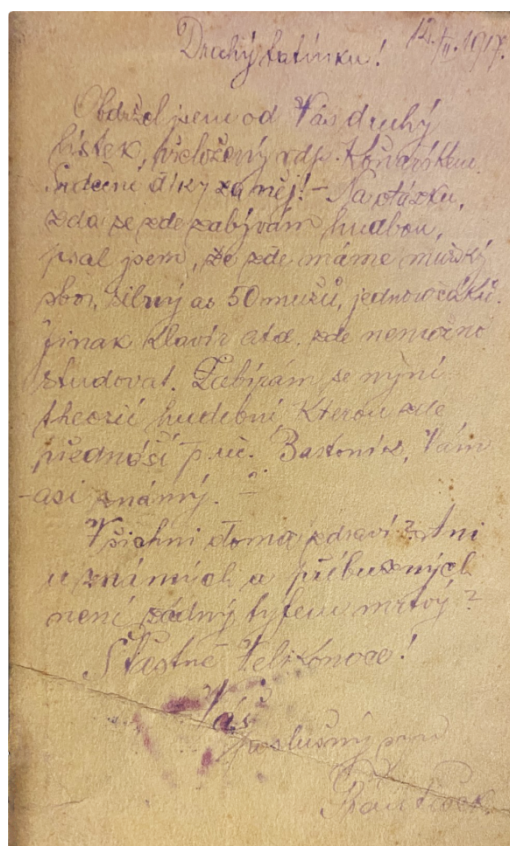 12./II. 1917.
Drahý tatínku!
Obdržel jsem od Vás druhý
lístek, přeložený rdp. Koňaříkem.
Srdečné díky za něj! - Na otázku,
zda se zde zabývám hudbou,
psal jsem, že zde máme mužský
sbor, silný as 50 mužů, jednoročáků.
Jinak klavír atd. zde nemožno
studovat. Zabírám se nyní
theorií hudební, kterou zde
přednáší p. uč. Bastonik, Vám
asi známý. -
Všichni doma zdraví? Ani
u známých a příbuzných
není žádný tyfem mrtvý?
Šťastné Velikonoce!
Váš
poslušný syn
František